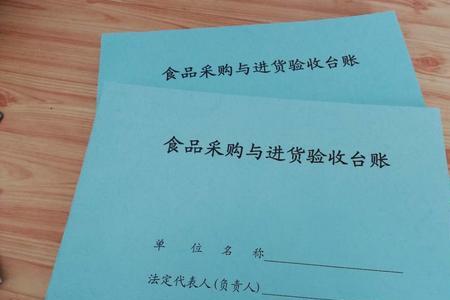 食品采购与进货验收台账
食品采购与进货验收台账
单位名称
法定代表人(负责人)